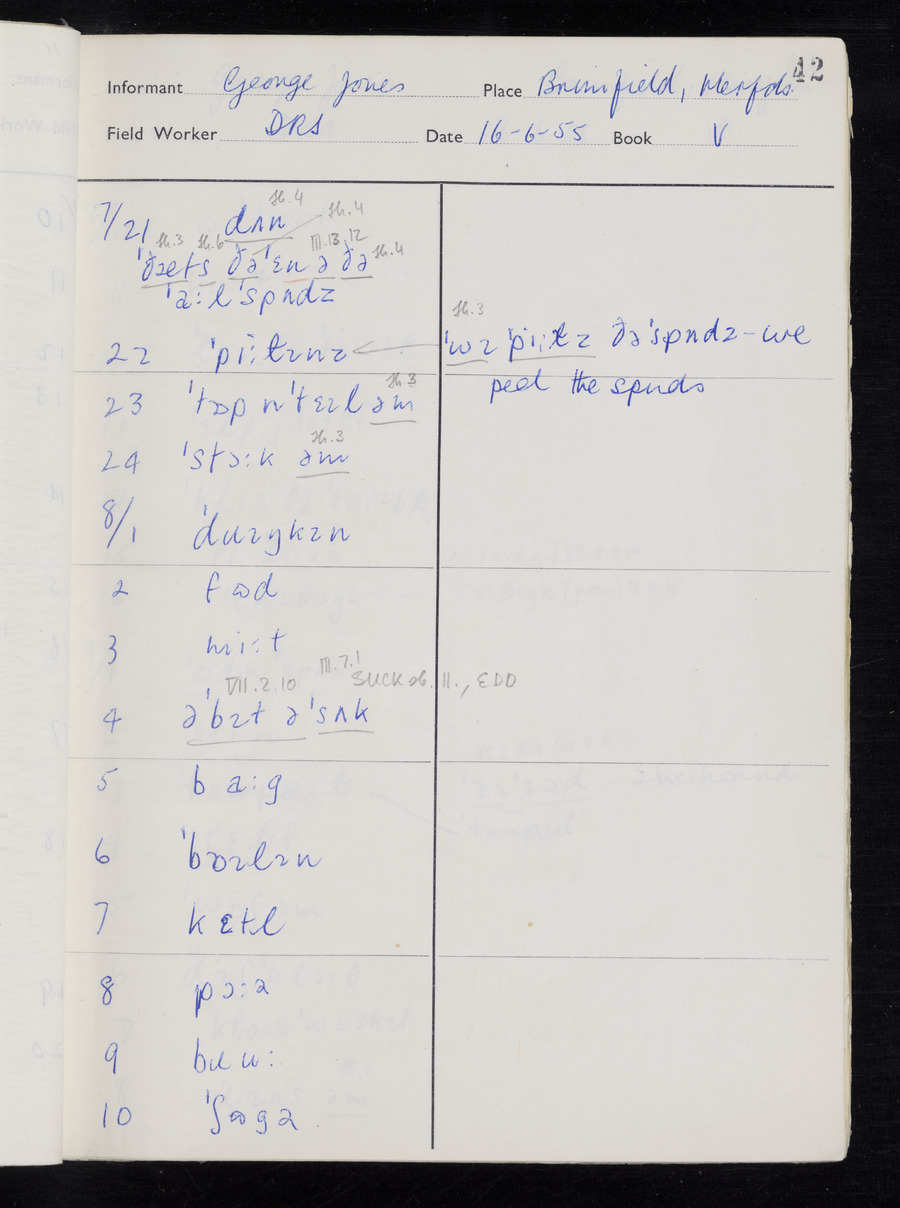 42
Informant George Jones Place Brimfield, Herefds.
Field Worker DRS Date 16-6-55 Book V
sh.4
7/21 dʌn sh.4
sh.3 sh.6 III.13.12 sh.4
ˈðæts ðəˈɛn ə ðə
ˈaːl ˈspʌdz
22 ˈpiːlɪnz
sh.3
ˈwɪ ˈpiːlz ðəˈspʌdz – we
peel the spuds
23 ˈtɒp nˈtɛɪl əm sh.3
24 ˈstɔːk əm sh.3
8/1
2 fʊd
3 miːt
VII.2.10 III.7.1 SUCK sb. 11., EDD
4 əˈbɪt əˈsʌk
5 baːg
6 ˈbɔɪlɪn
7 kɛtl
8 pɔːə
9 bɹuː
10 ˈʃʊgə